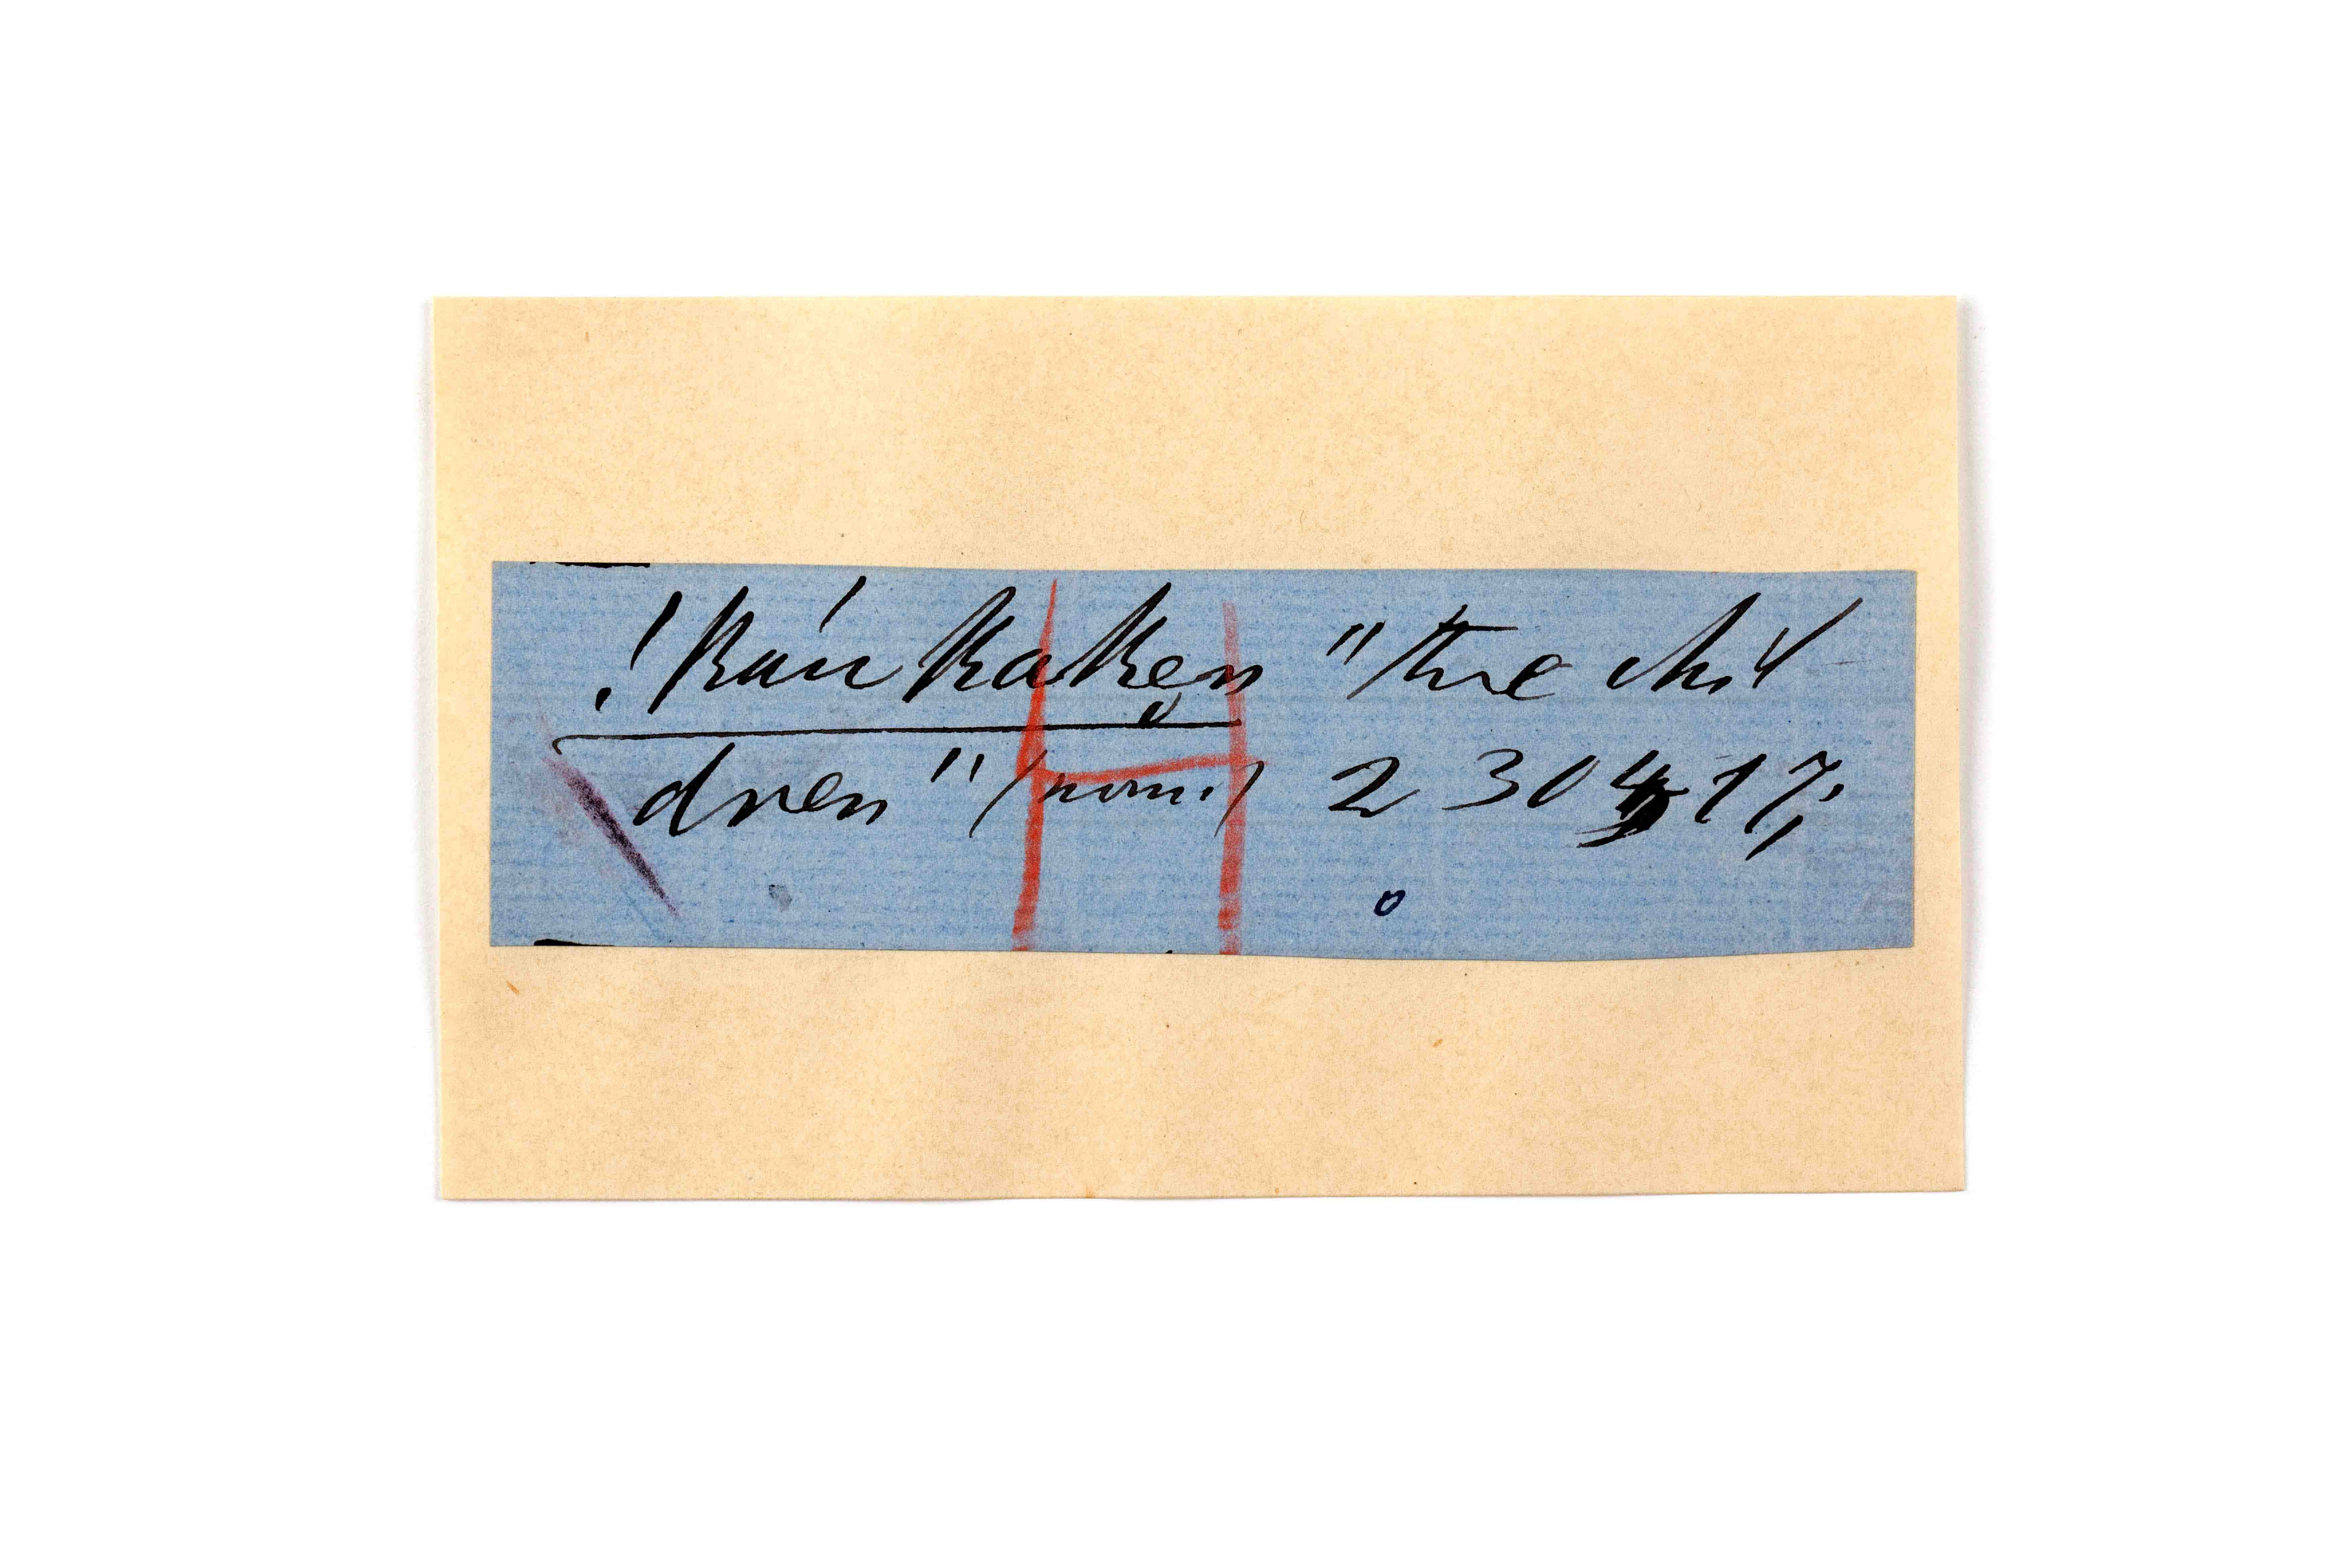 !kaúkakẹn "the chil
dren" (nom.) 2 304 17;
H